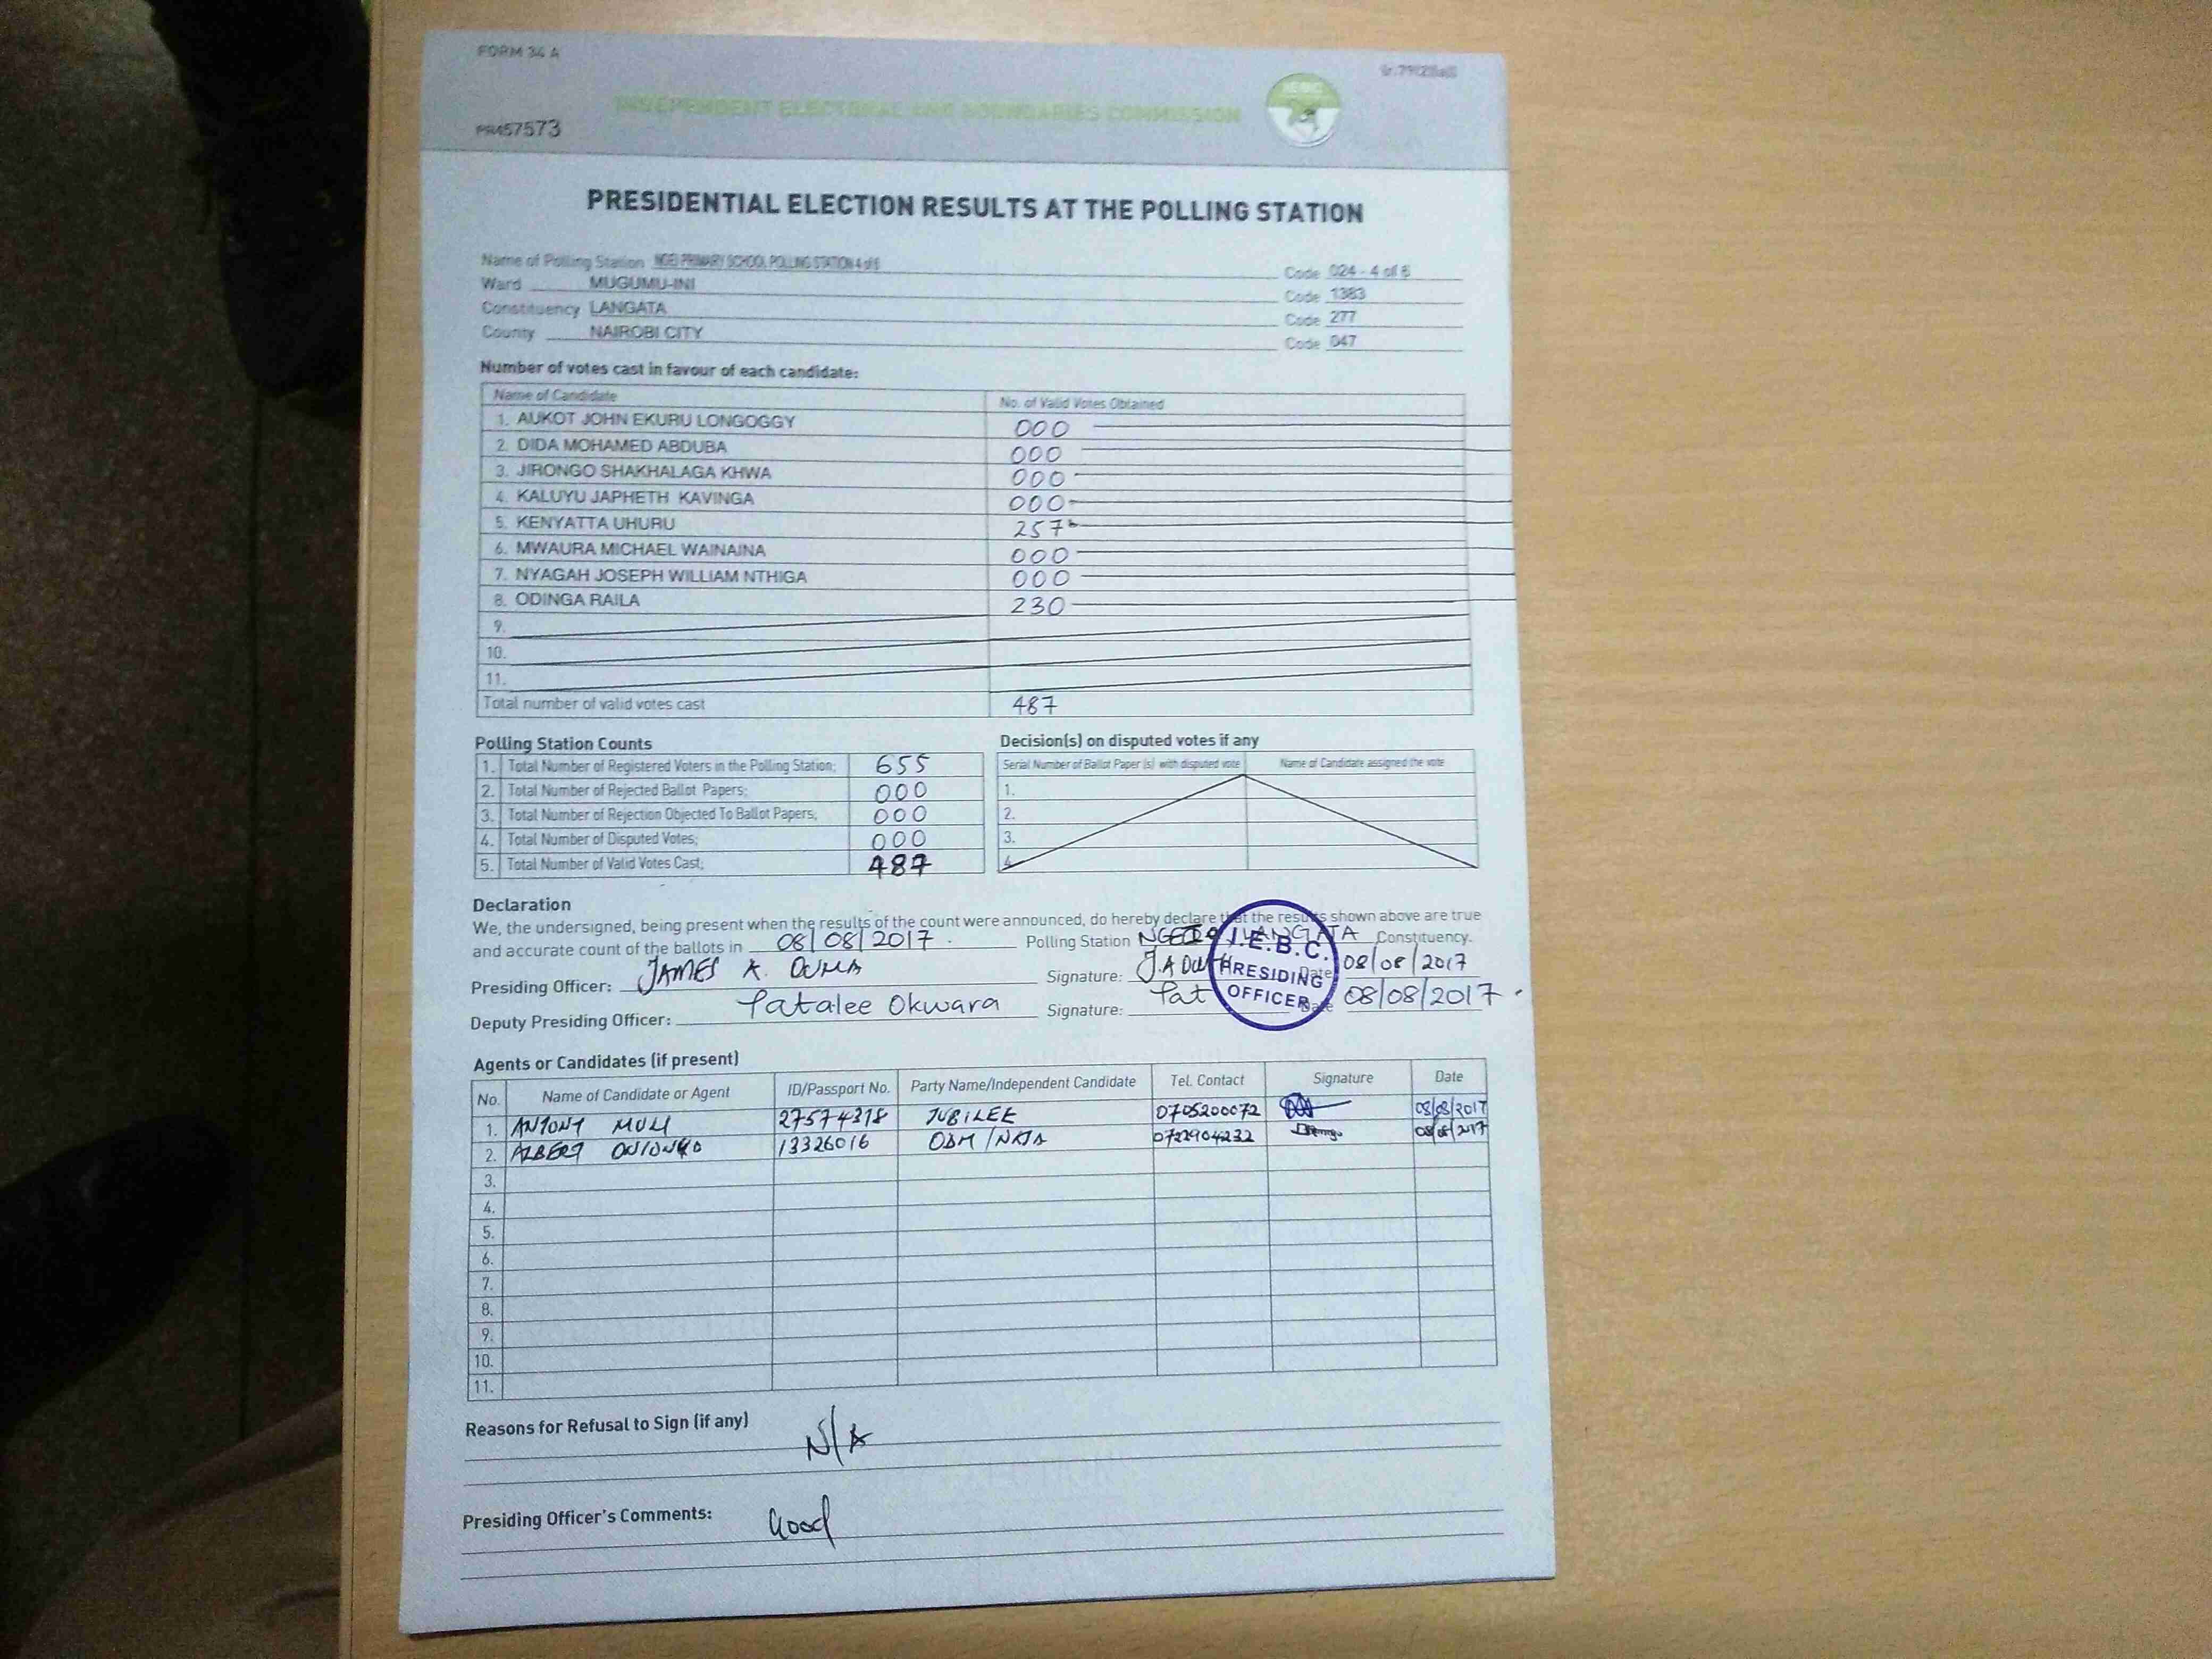 FORM 34 A
INDEPENDENT ELECTORAL AND BOUNDARIES COMMISSION
PR457573
PRESIDENTIAL ELECTION RESULTS AT THE POLLING STATION
Name of Polling Station NGEI PRIMARY SCHOOL POLLING STATION 4 of 6 Code 024 - 4 of 6
Ward MUGUMU-INI Code 1383
Constituency LANGATA Code 277
County NAIROBI CITY Code 047
Number of votes cast in favour of each candidate:
Name of Candidate No. of Valid Votes Obtained
1. AUKOT JOHN EKURU LONGOGGY 000
2. DIDA MOHAMED ABDUBA 000
3. JIRONGO SHAKHALAGA KHWA 000
4. KALUYU JAPHETH KAVINGA 000
5. KENYATTA UHURU 257
6. MWAURA MICHAEL WAINAINA 000
7. NYAGAH JOSEPH WILLIAM NTHIGA 000
8. ODINGA RAILA 230
9.
10.
11.
Total number of valid votes cast 487
Polling Station Counts
1. Total Number of Registered Voters in the Polling Station; 655
2. Total Number of Rejected Ballot Papers; 000
3. Total Number of Rejection Objected To Ballot Papers; 000
4. Total Number of Disputed Votes; 000
5. Total Number of Valid Votes Cast; 487
Decision(s) on disputed votes if any
Serial Number of Ballot Paper (s) with disputed vote Name of Candidate assigned the vote
1.
2.
3.
4.
Declaration
We, the undersigned, being present when the results of the count were announced, do hereby declare that the results shown above are true
and accurate count of the ballots in 08/08/2017 . Polling Station LANGATA Constituency.
Presiding Officer: JAMES A. OUMA Signature: Date 08/08/2017
Deputy Presiding Officer: Patalee Okwara Signature: Pat Date 08/08/2017 .
I.E.B.C.
PRESIDING
OFFICER
Agents or Candidates (if present)
No. Name of Candidate or Agent ID/Passport No. Party Name/Independent Candidate Tel. Contact Signature Date
1. ANTONY MULI 27574318 JUBILEE 0705200072 08/08/2017
2. ALBERT 13326016 ODM / 0722904232 08/08/2017
3.
4.
5.
6.
7.
8.
9.
10.
11.
Reasons for Refusal to Sign (if any) N/A
Presiding Officer's Comments: Good